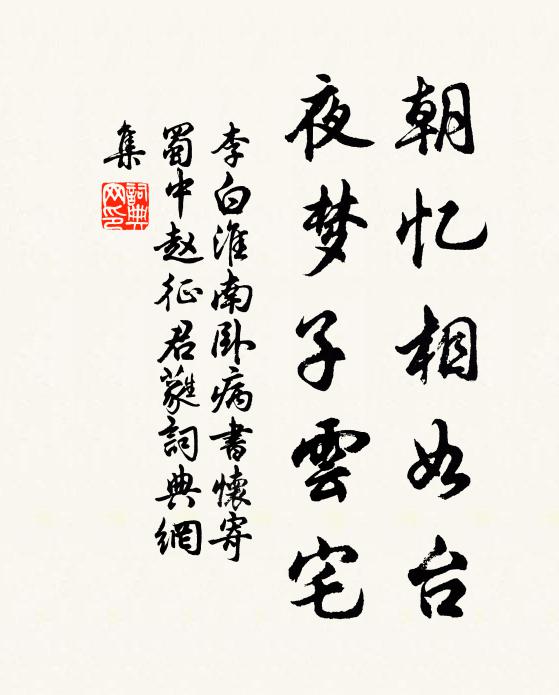 朝忆相如台
夜梦子雲宅
李白淮南卧病書懷寄
蜀中赵征君蕤詞典網
集
詞典
网印